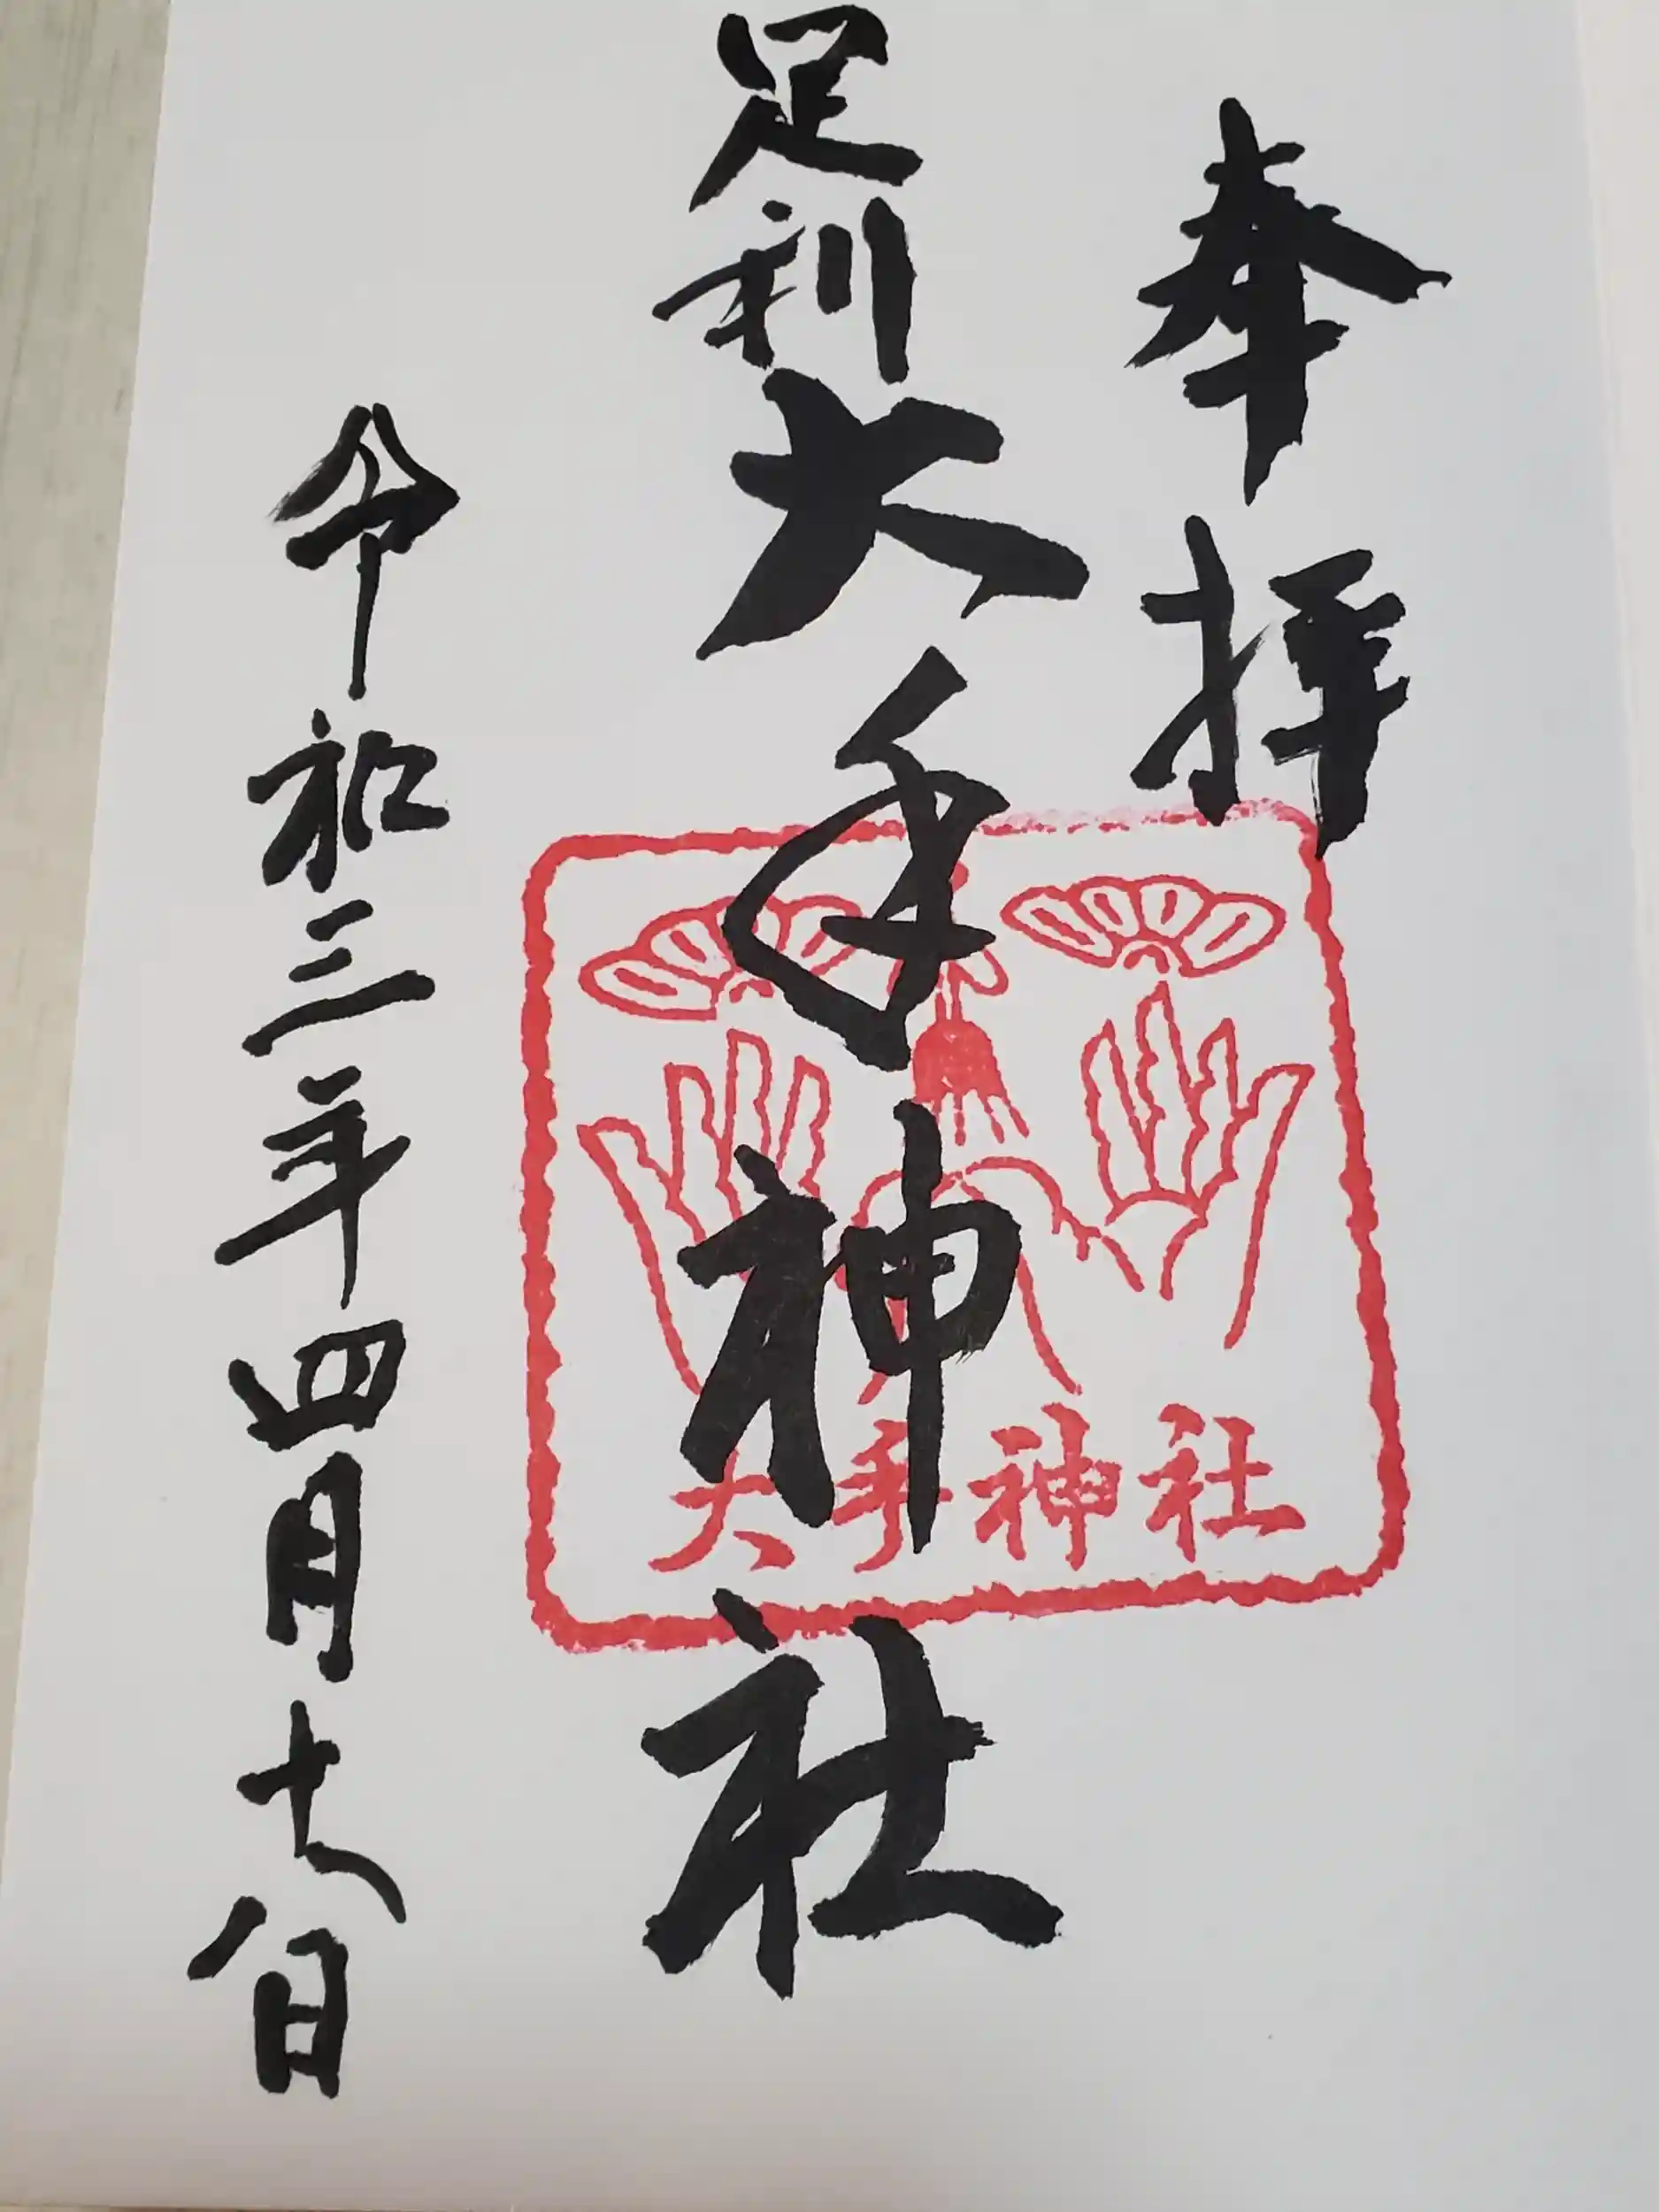 奉拝
足利大手神社
令和三年四月十八日
大手神社